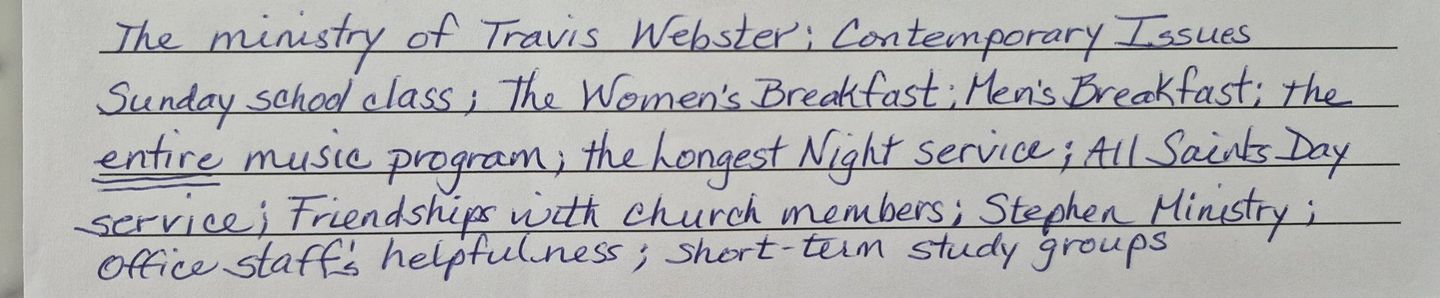 The ministry of Travis Webster; Contemporary Issues
Sunday school class; The Women's Breakfast; Men's Breakfast; the
entire music program; the Longest Night service; All Saints Day
service; Friendships with church members; Stephen Ministry;
office staff's helpfulness; short-term study groups